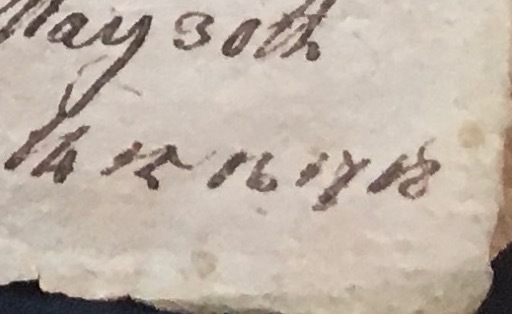 May 30th
14 15 16 17 18